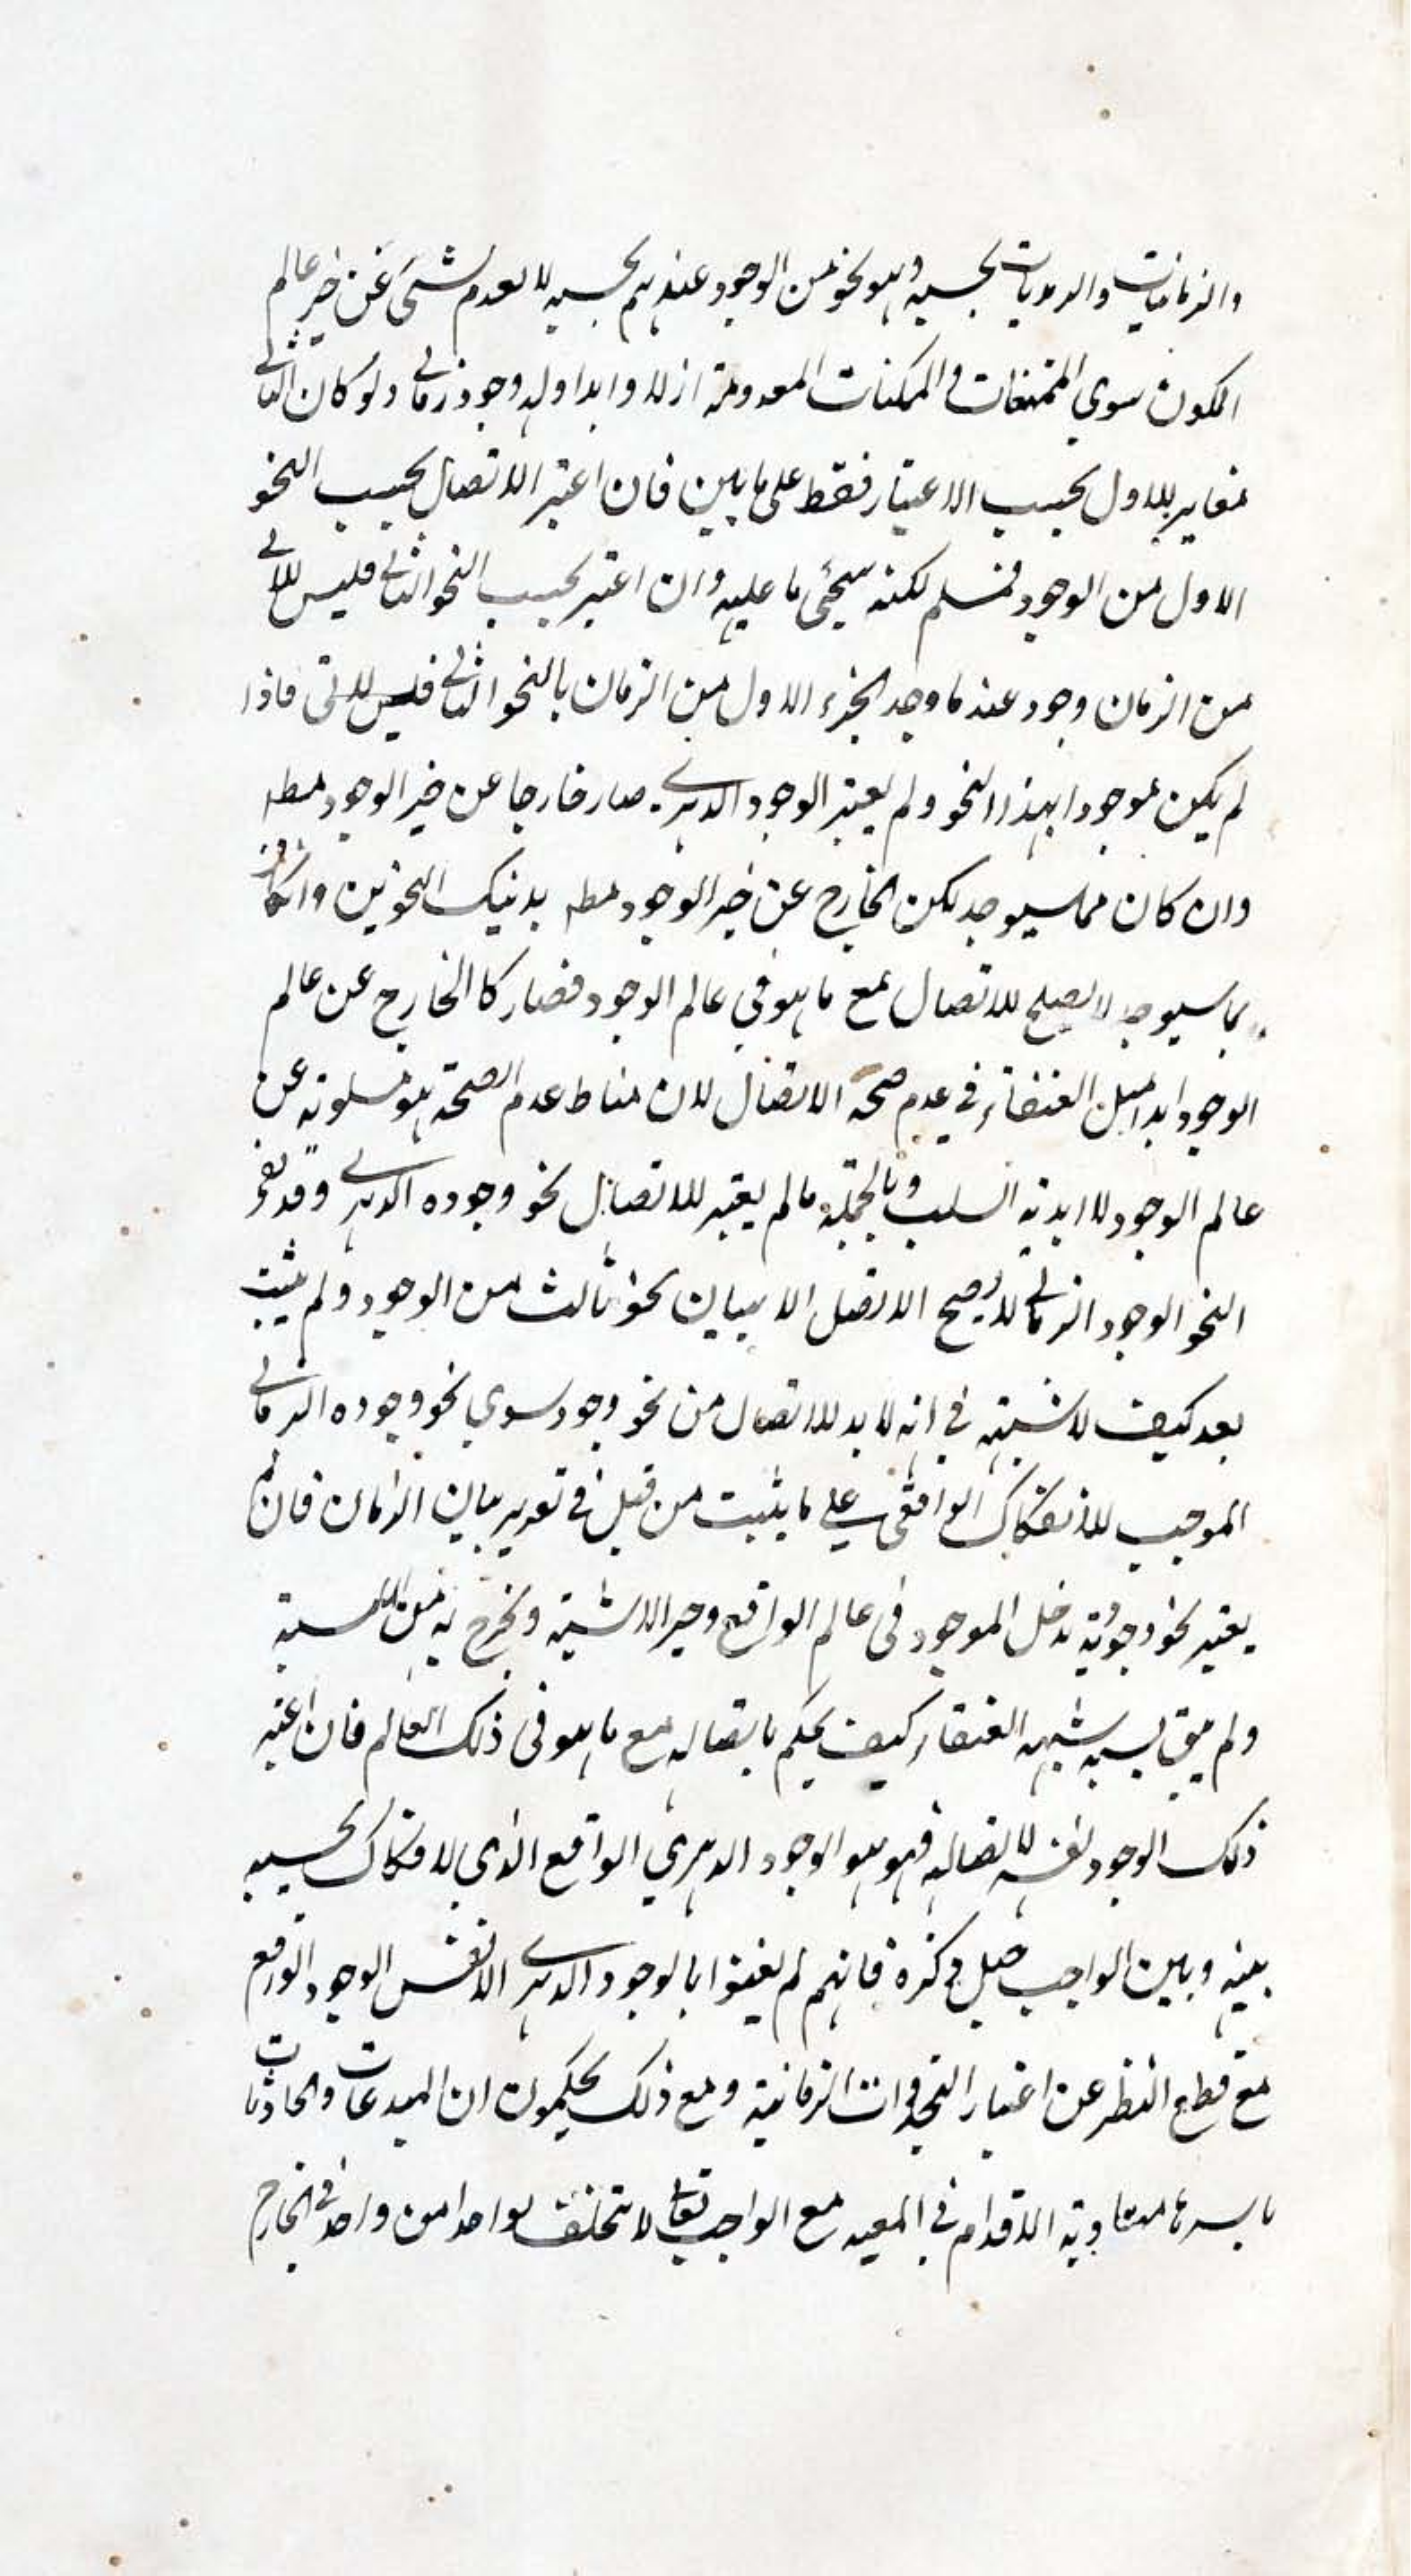 والزمانيات والدهريات بحسبه وهو نحو من الوجود عندهم بحسبه لا يعدم شيء عن حيز عالم
الكون سوى الممتنعات والممكنات المعدومة ازلا وابدا وله وجود زماني ولو كان الثاني
مغاير للاول بحسب الاعتبار فقط على ما بين فان اعتبر الاتصال بحسب النحو
الاول من الوجود فمسلم لكنه سيجئ ما عليه وان اعتبر بحسب النحو الثاني فليس للآتي
من الزمان وجود عند ما وجد الجزء الاول من الزمان بالنحو الثاني فليس للآتي فاذا
لم يكن موجودا بهذا النحو ولم يعتبر الوجود الدهري صار خارجا عن حيز الوجود مطه
وان كان مما سيوجد لكن الخارج عن حيز الوجود مطه بذينك النحوين وان كان
مما سيوجد لا يصلح للاتصال مع ما هو في عالم الوجود فصار كالخارج عن عالم
الوجود ابدا مثل العنقاء في عدم صحة الاتصال لان مناط عدم الصحة هو مسلوبيته عن
عالم الوجود لا ابدية السلب وبالجملة ما لم يعتبر للاتصال نحو وجوده الدهري وقد
النحو الوجود الزماني لا يصح الاتصال الا ببيان نحو ثالث من الوجود ولم يثبت
بعد كيف لا شبهة في انه لا بد للاتصال من نحو وجود سوى نحو وجوده الزماني
الموجب للانفكاك الواقعي على ما يثبت من قبل في تقرير بيان الزمان فان لم
يعتبر نحو وجود به يدخل الموجود في عالم الواقع وحيز الاشية ويخرج به من الليسية
ولم يبق بسببه شبهه العنقاء كيف يحكم باتصاله مع ما هو في ذلك العالم فان اعتبر
ذلك الوجود نفسه لاتصاله فهو هو الوجود الدهري الواقع الذي لا انفكاك بحسبه
بينه وبين الواجب جل ذكره فانهم لم يعنوا بالوجود الدهري الا نفس الوجود الواقع
مع قطع النظر عن اعتبار التجددات الزمانية ومع ذلك يحكمون ان المبدعات والحادثات
باسرها متساوية الاقدام في المعيه مع الواجب تعالى لا تخلف لواحد من واحد في الخارج